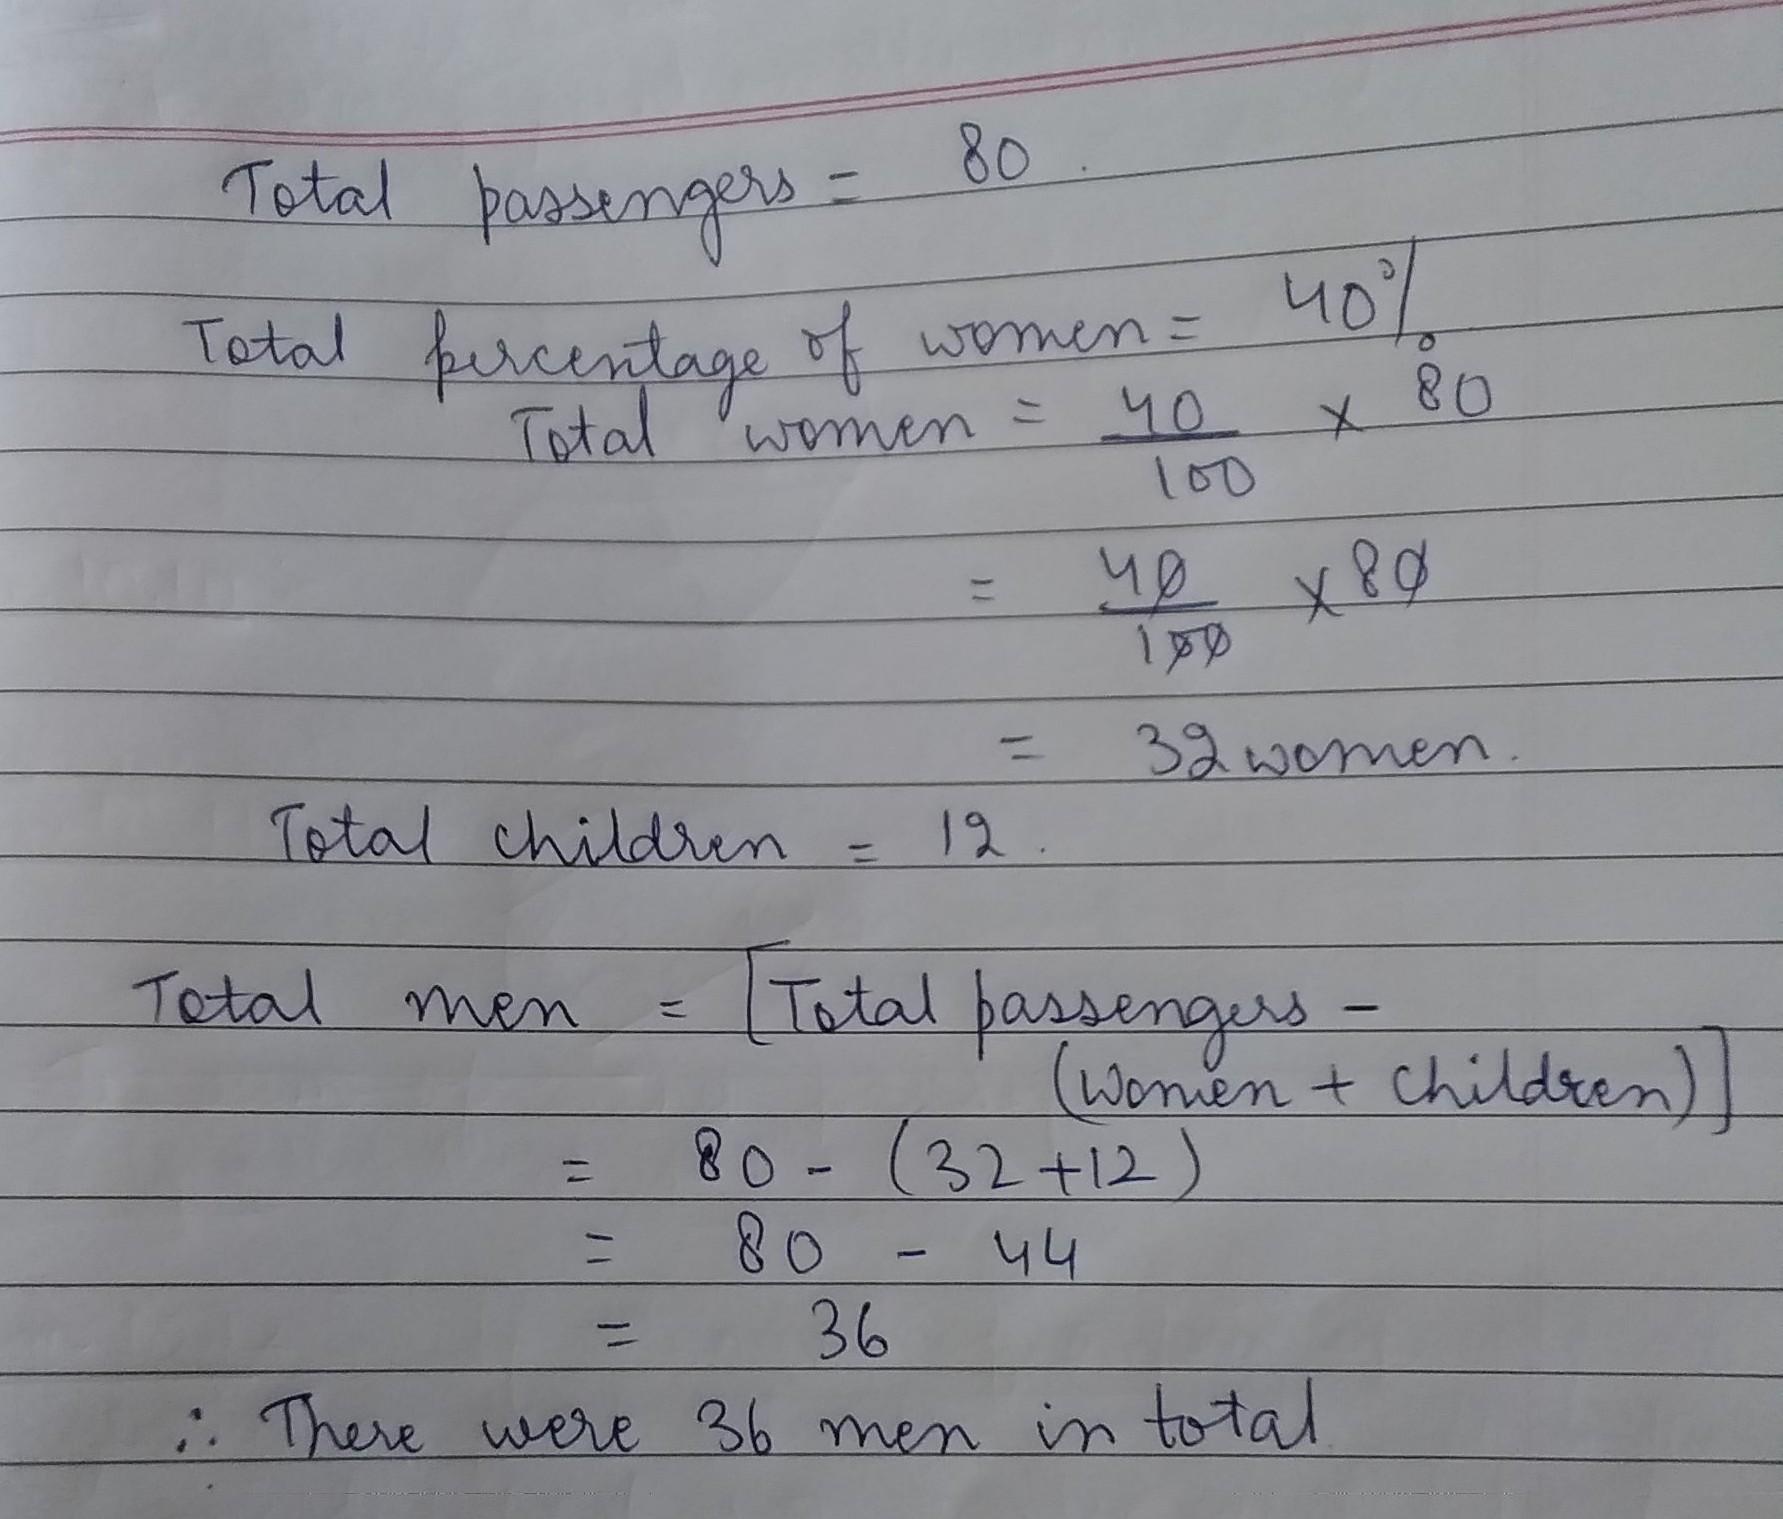 Total passengers = 80.
Total percentage of women = 40%
Total women = 40/100 x 80
= 40/100 x 80
= 32 women.
Total children = 12.
Total men = [Total passengers -
(Women + Children)]
= 80 - (32+12)
= 80 - 44
= 36
∴ There were 36 men in total